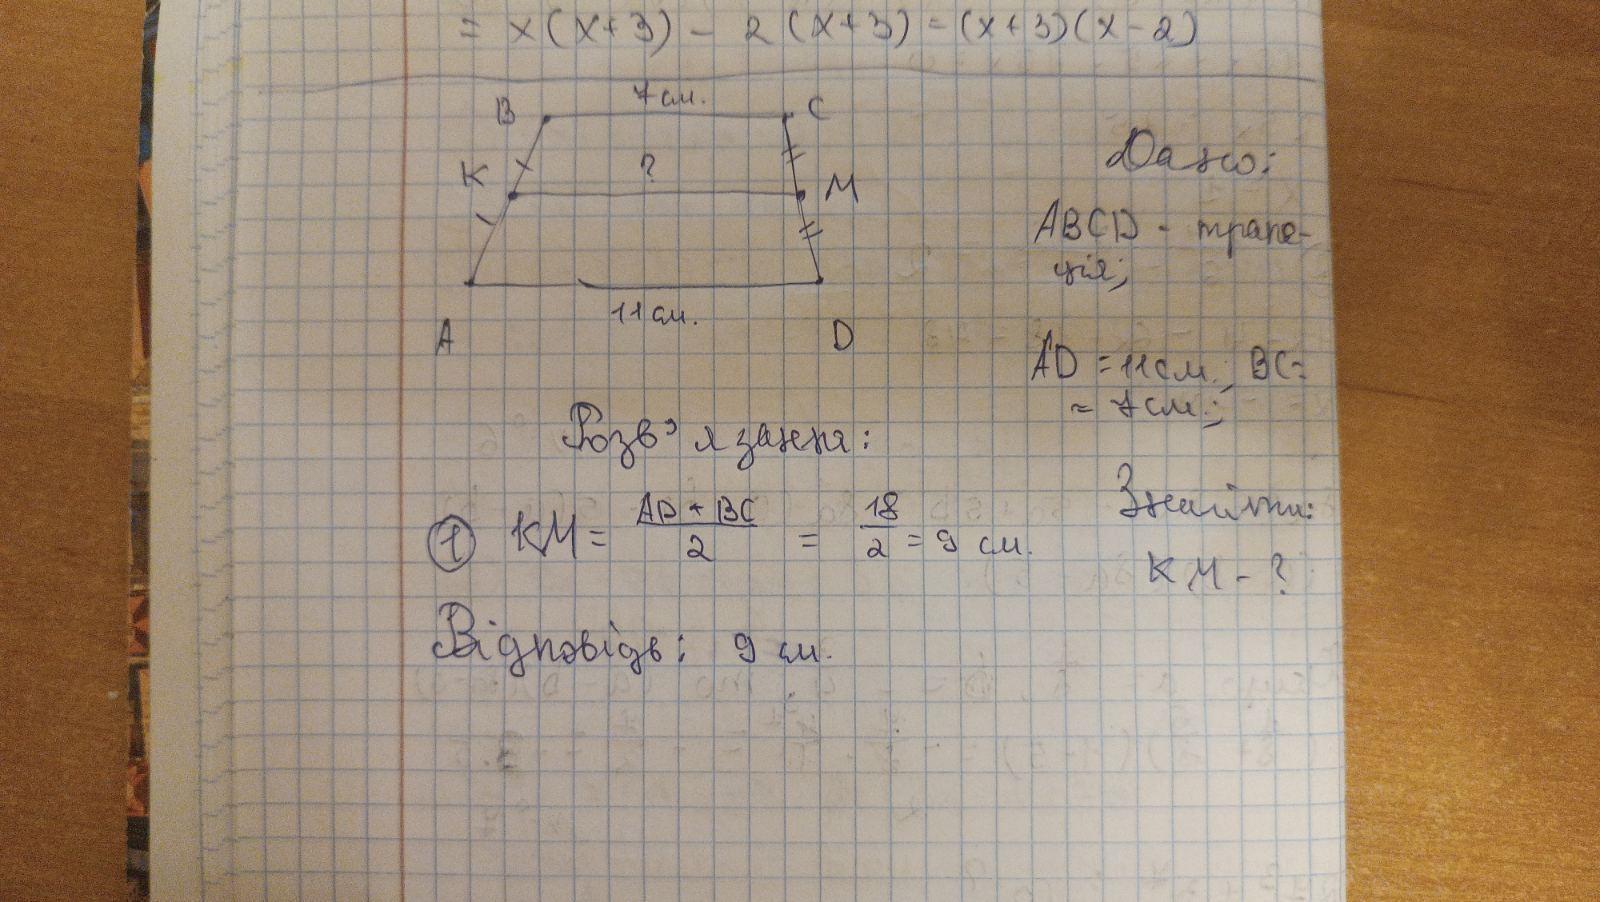 = x(x+3) - 2(x+3) = (x+3)(x-2)
7 см.
B C
K ? M
11 см.
A D
Дано:
ABCD - трапе-
ція;
AD = 11 см.; BC =
= 7 см.;
Знайти:
KM - ?
Розв'язання:
1 KM = AD + BC / 2 = 18 / 2 = 9 см.
Відповідь: 9 см.